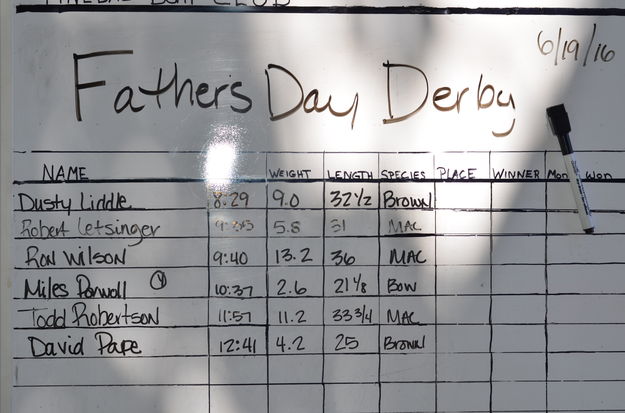 CLUB
6/19/16
Father's Day Derby
NAME WEIGHT LENGTH SPECIES PLACE WINNER Mon Won
Dusty Liddle 8:29 9.0 32 1/2 Brown
Robert Letsinger 5.8 31 MAC
Ron Wilson 9:40 13.2 36 MAC
Miles Y 10:37 2.6 21 1/8 Bow
Todd Robertson 11:57 11.2 33 3/4 MAC
David Pape 12:41 4.2 25 Brown